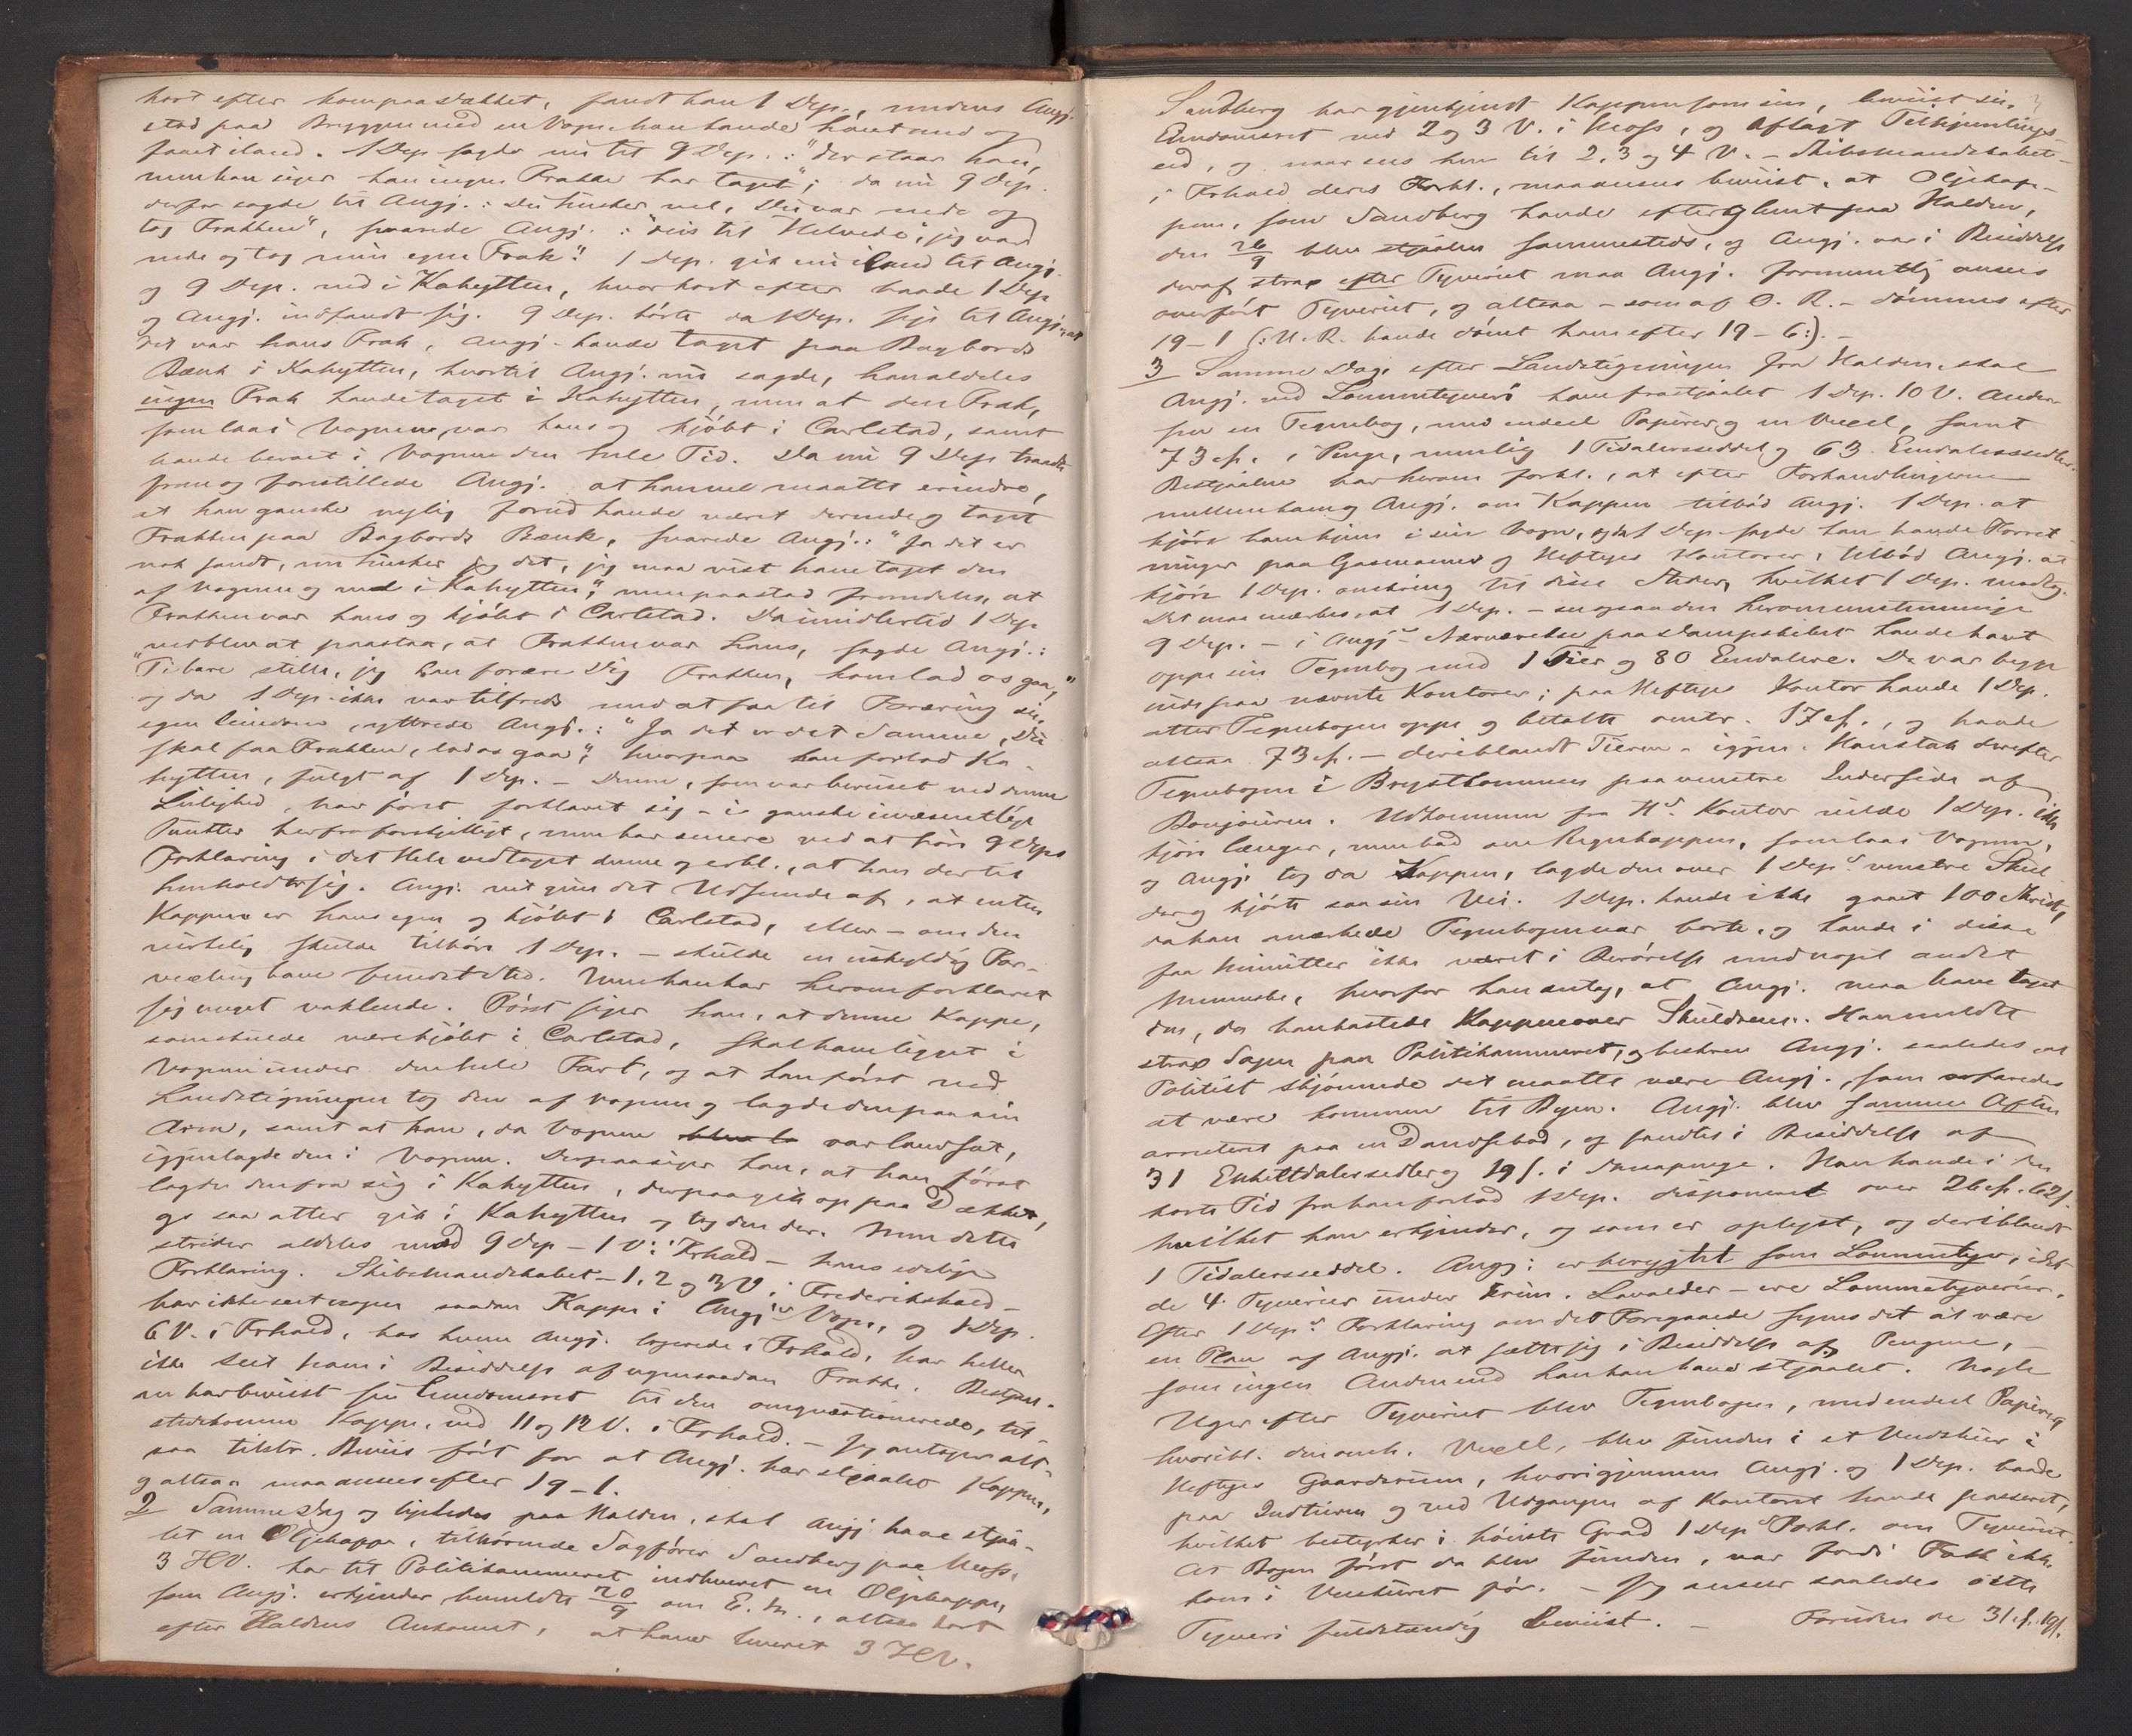 kort efter kom paa Dækket, fandt han 1 Dep., medens Angj.
stod paa Bryggen med en Vogn han havde havt med og
faaet iland. 1 Dep sagde nu til 9 Dep.: "der staar han,
men han siger han ingen Frakke har taget"; da nu 9 Dep.
derfor sagde til Angj.: Du husker vel, Du var nede og
tog Frakken", svarede Angj.: "Reis til Helvede", jeg var
nede og tog min egen Frak". 1 Dep. gik nu iland til Angj.
og 9 Dep. ned i Kahytten, hvor kort efter baade 1 Dep
og Angj. indfandt sig. 9 Dep. hørte da 1 Dep. sige til Angj., at
det var hans Frak, Angj. havde taget paa Bagbords
Bænk i Kahytten, hvortil Angj. nu sagde, han aldeles
ingen Frak havde taget i Kahytten, men at den Frak,
som laa i Vognen, var hans og kjøbt i Carlstad, samt
havde beroet i Vognen den hele Tid. Da nu 9 Dep. traadte
frem og forestillede Angj. at han vel maatte erindre,
at han ganske nylig forud havde været dernede og taget
Frakken paa Bagbords Bænk, svarede Angj.: "Ja det er
nok sandt, nu husker jeg det, jeg maa vist have taget den
af Vognen og ned i Kahytten", men paastod fremdeles, at
Frakken var hans og kjøbt i Carlstad. Da imidlertid 1 Dep
vedblev at paastaa, at Frakken var hans, sagde Angj.:
"Ti bare stille, jeg kan forære Dig Frakken, kom lad os gaa,"
og da 1 Dep. ikke var tilfreds med at faa til Foræring sin
egen Eiendom, yttrede Angj.: "Ja det er det Samme, Du
skal faa Frakken, lad os gaa", hvorpaa han forlod Ka-
hytten, fulgt af 1 Dep. – Denne, som var beruset ved denne
Leilighed, har først forklaret sig – i ganske uvæsentlige
Punkter herfra forskjelligt, men har senere ved at høre 9 Deps
Forklaring i det Hele vedtaget denne og erkl., at han dertil
henholdt sig. Angj. vil gjøre det Udseende af, at enten
Kappen er hans egen og kjøbt i Carlstad, eller – om den
virkelig skulde tilhøre 1 Dep. – skulde en uskyldig For-
vexling have fundet Sted. Men han har herom forklaret
sig meget vaklende. Først siger han, at denne Kappe,
som skulde være kjøbt i Carlstad, skal have ligget i
Vognen under den hele Fart, og at han først ved
Landstigningen tog den af Vognen og lagde den paa sin
Arm, samt at han, da Vognen var landsat,
igjen lagde den i Vognen. Derpaa siger han, at han først
lagde den fra sig i Kahytten, derpaa gik op paa Dækket,
og saa atter gik i Kahytten og tog den der. Men dette
strider aldeles mod 9 Dep – 1 V. i Frhald – hans edelige
Forklaring. Skibsmandskabet – 1, 2 og 3 V. i Frederikshald –
har ikke seet nogen saadan Kappe i Angj's Vogn, og 1 Dep.
6 V. i Frhald, hos hvem Angj. logerede i Frhald, har heller
ikke seet ham i Besiddelse af nogen saadan Frakke. Bestjaal-
ne har beviist sin Eiendomsret til den omqvæstionerede, til-
stedekomne Kappe, ved 11 og 12 V. i Frhald. – Jeg antager alt-
saa tilstr. Beviis ført for at Angj. har stjaalet Kappen,
og altsaa maa ansees efter 19–1.
2 Samme Dag og ligeledes paa Halden, skal Angj. have stjaa-
let en Oljekappe, tilhørende Sagfører Sandberg paa Moss.
3 HV. har til Politikammeret indleveret en Oljekappe,
som Angj. erkjender bemeldte 20/9 om E. M., altsaa kort
efter Haldens Ankomst, at have leveret 3 HV.
Sandberg har gjenkjendt Kappen som sin, beviist sin
Eiendomsret ved 2 og 3 V. i Moss, og aflagt Tilhjemlings-
eed, og naar sees hen til 2, 3 og 4 V. – Skibsmandskabet –
i Frhald deres Forkl., maa ansees beviist, at Oljekap-
pen, som Sandberg havde efterglemt paa Halden,
den 20/9 blev stjaalen sammesteds, og Angj. var i Besiddelse
deraf strax efter Tyveriet maa Angj. formentlig ansees
overført Tyveriet, og altsaa – som af O. R. – dømmes efter
19–1 (: U. R. havde dømt ham efter 19–6:). –
3 Samme Dag, efter Landstigningen fra Halden, skal
Angj. ved Lommetyveri have frastjaalet 1 Dep. 10 V. Ander-
sen en Tegnebog, med endeel Papirer og en Vexel, samt
73 Sp. i Penge, nemlig 1 Tidalersseddel og 63 Eendalerssedler.
Bestjaalne har herom forkl., at efter Forhandlingerne
mellem ham og Angj. om Kappen tilbød Angj. 1 Dep. at
kjøre ham hjem i sin Vogn, og da 1 Dep. sagde han havde Forret-
ninger paa Gasmanns og Heftyes Kontorer, tilbød Angj. at
kjøre 1 Dep. omkring til disse Steder, hvilket 1 Dep. modtog.
Det maa mærkes, at 1 Dep. – se ogsaa den heromstemmige
9 Dep. – i Angj's Nærværelse paa Dampskibet havde havt
oppe sin Tegnebog med 1 Tier og 80 Eendalere. De var begge
inde paa nævnte Kontorer; paa Heftyes Kontor havde 1 Dep.
atter Tegnebogen oppe og betalte omtr. 17 Sp., og havde
altsaa 73 Sp. – deriblandt Tieren – igjen. Han stak derefter
Tegnebogen i Brystlommen paa venstre Inderside af
Bonjouren. Udkommen fra H's Kontor vilde 1 Dep. ikke
kjøre længer, men bad om Regnkappen, som laa i Vognen,
og Angj. tog da Kappen, lagde den over 1 Dep's venstre Skul-
der og kjørte saa sin Vei. 1 Dep. havde ikke gaaet 100 Skridt,
da han mærkede Tegnebogen var borte, og havde i disse
faa Minutter ikke været i Berørelse med noget andet
Menneske, hvorfor han antog, at Angj. maa have taget
den, da han kastede Kappen over Skuldrene. Han meldte
strax Sagen paa Politikammeret, og beskrev Angj. saaledes at
Politiet skjønnede det maatte være Angj., som erfaredes
at være kommen til Byen. Angj. blev samme Aften
arresteret paa en Dandsebod, og fandtes i Besiddelse af
31 Enkeltdalersedler og 19 s. i Smaapenge. Han havde i den
korte Tid fra han forlod 1 Dep. disponeret over 26 Sp. 62 s.
hvilket han erkjender, og som er oplyst, og deriblandt
1 Tidalersseddel. Angj. er berygtet som Lommetyv, idet
de 4 Tyverier under Krim. Lavalder – ere Lommetyverier.
Efter 1 Dep's Forklaring om det Foregaaede synes det at være
en Plan af Angj. at sætte sig i Besiddelse af Pengene, –
som ingen Anden end han kan have stjaalet. Nogle
Uger efter Tyveriet blev Tegnebogen, med endeel Papirer,
hvoribl. den omh. Vexel, blev funden i et Vedskuur i
Heftyes Gaardsrum, hvorigjennem Angj. og 1 Dep. baade
paa Indturen og ved Udgangen af Kontoret havde passeret,
hvilket bestyrker i høieste Grad 1 Dep's Forkl. om Tyveriet.
At Bogen først da blev funden, var fordi Folk ikke
kom i Vedskuret før. – Jeg anseer saaledes dette
Tyveri fuldstændig beviist. – Foruden de 31 Sp. 19 s.